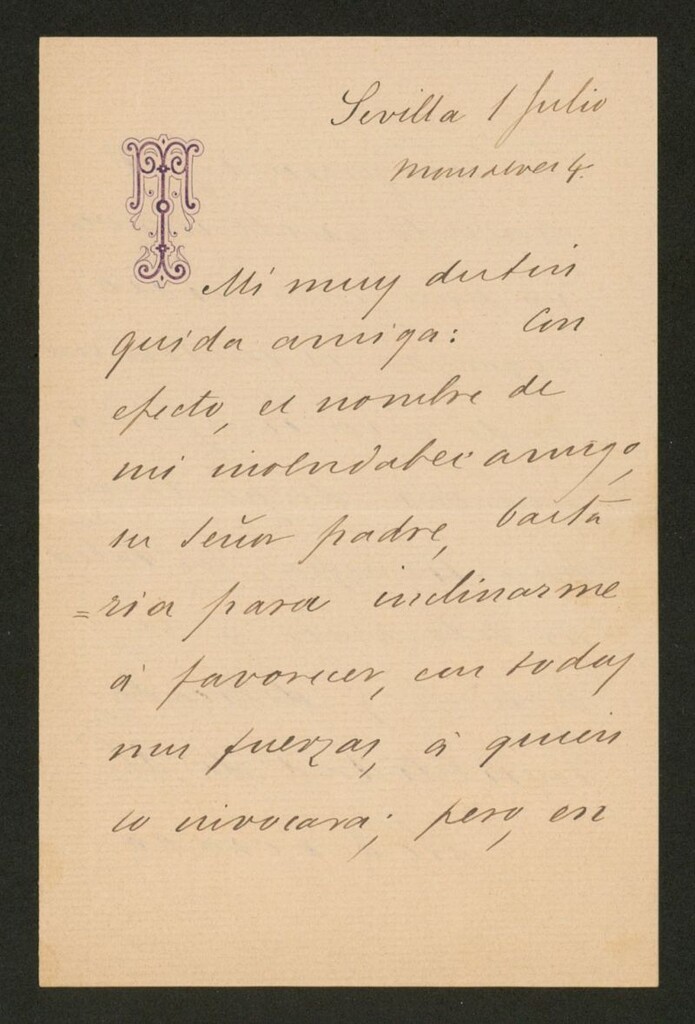 T
Sevilla 1 Julio
Monsalves 4.
Mi muy distin
guida amiga: Con
efecto, el nombre de
mi inolvidable amigo,
su Señor padre, basta
=ria para inclinarme
á favorecer, con todas
mis fuerzas, á quien
lo invocara; pero, en